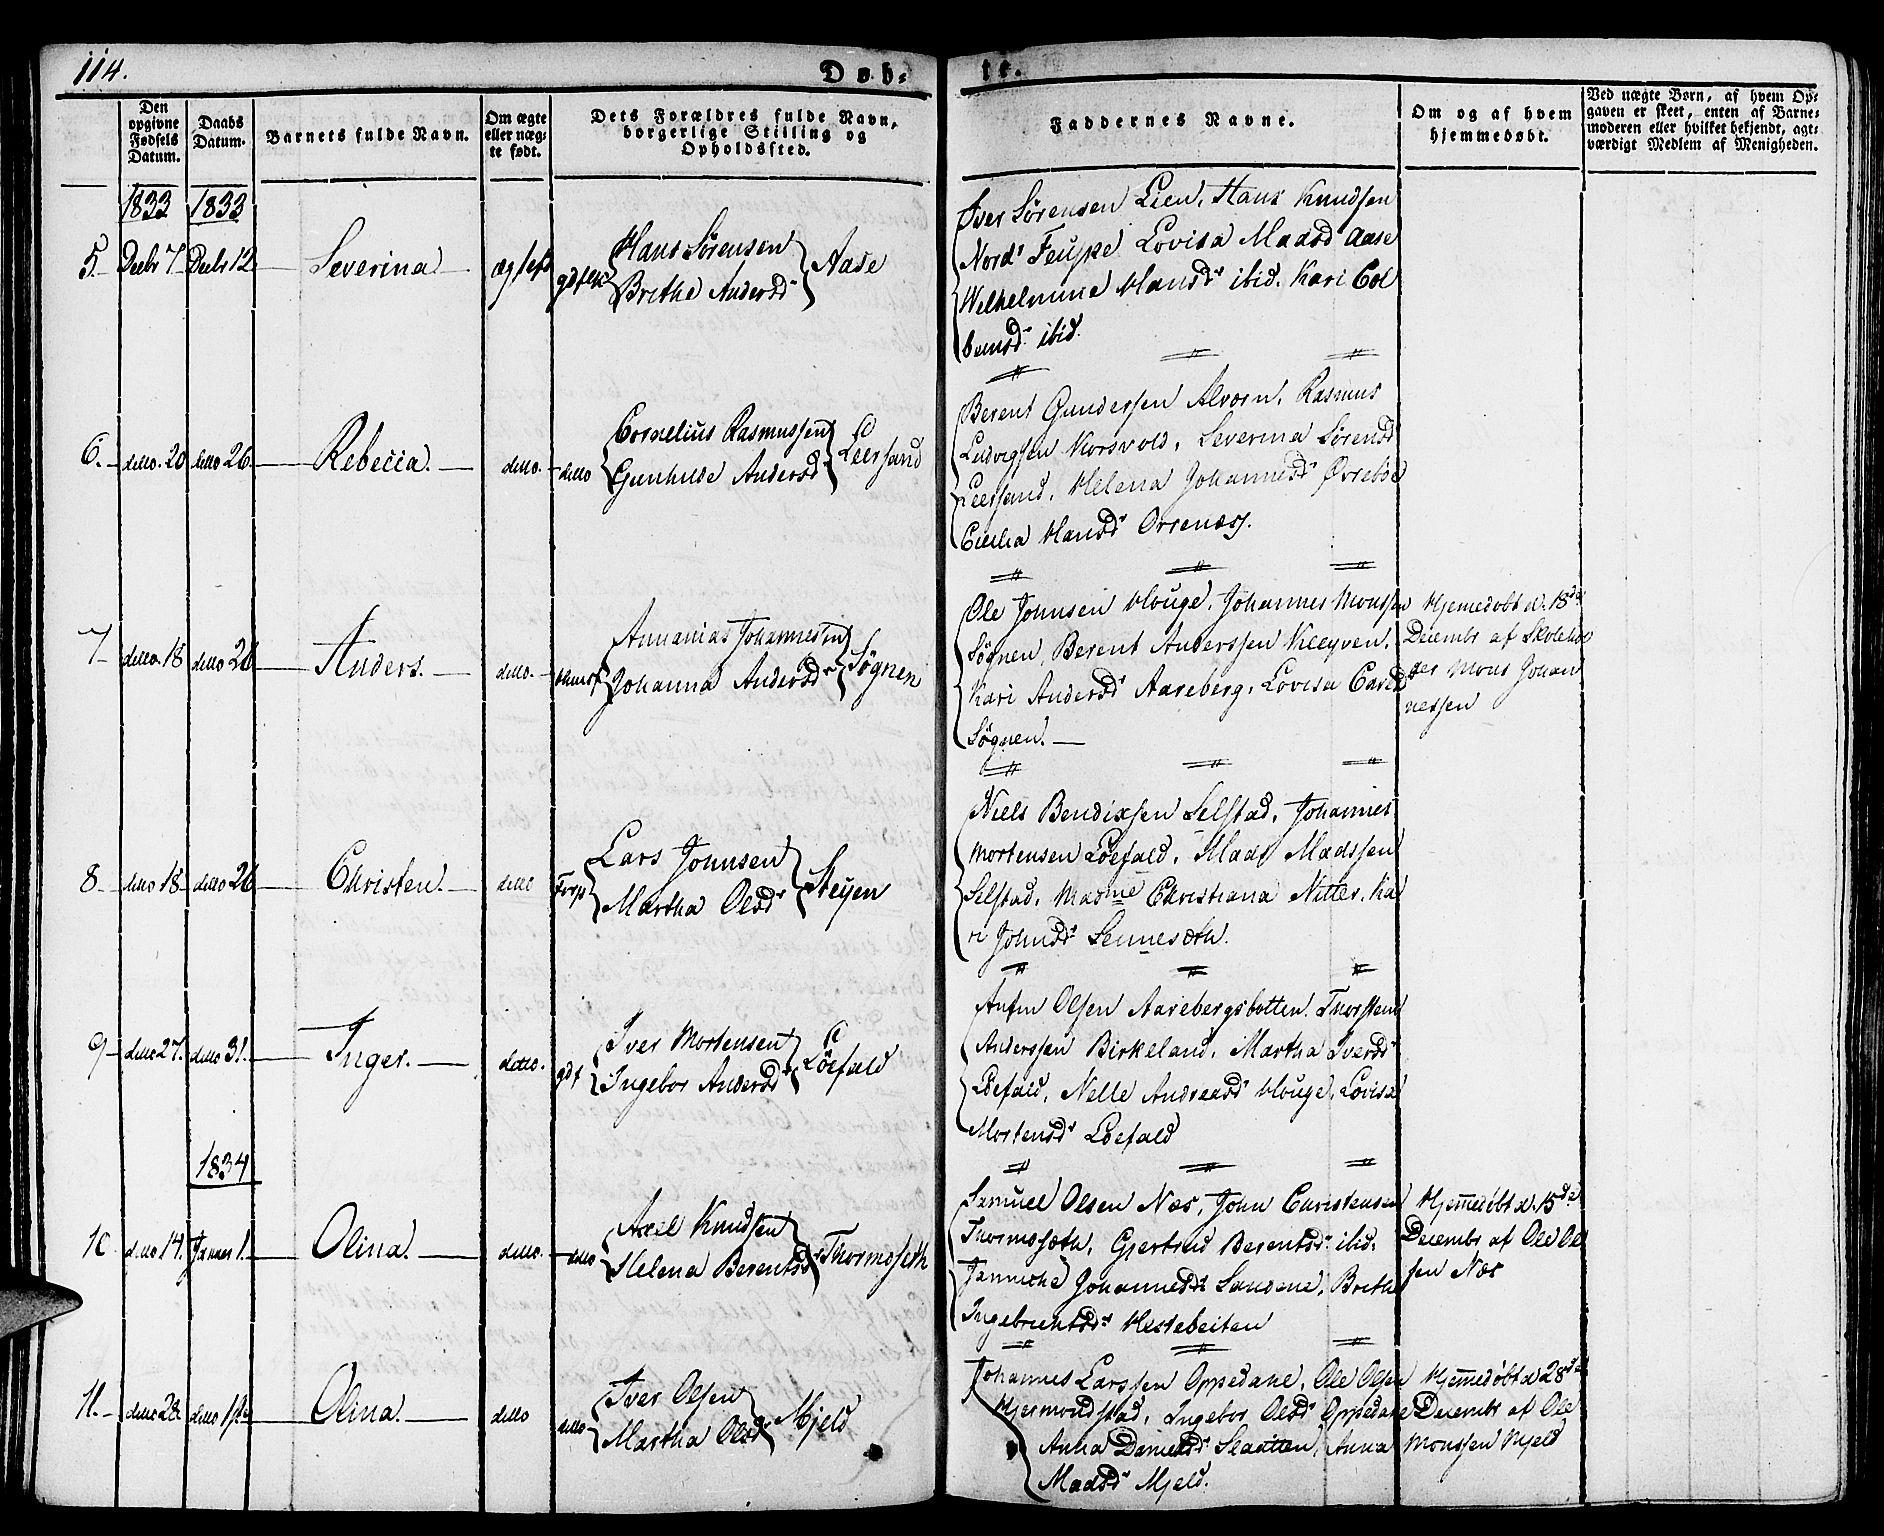 114.
Døb-
te.
Den opgivne Fødsels Datum.
Daabs Datum.
Barnets fulde Navn.
Om ægte eller næg-te født.
Dets Forældres fulde Navn, borgerlige Stilling og Opholdssted.
Faddernes Navne.
Om og af hvem hjemmedøbt.
Ved nægte Børn, af hvem Op-gaven er skeet, enten af Barne-moderen eller hvilket bekjendt, agt-værdigt Medlem af Menigheden.
1833 1833
5. Decbr 7 Decbr 12 Severina
Hans Sørensen
Brithe Andersdr
Aase
Iver Sørensen Lien, Hans Knudsen
Nord Lovisa Madsdr Aase
Wilhelmine Hansdr ibid. Kari Col
bensdr ibid.
6. detto. 20 detto 26. Rebecca. detto. detto
Cornelius Rasmussen
Gunhilde Andersdr
Leersand
Berent Gundersen Alvorn, Rasmus
Ludvigsen Korsvold, Severina Sørensdr
Leersand, Helena Johannesdr Øvrebøe
Cecilia Hansdr Orsenæss.
7 detto. 18 detto 26 Anders. detto.
Annanias Johannessen
Johanna Andersdr
Søgnen
Ole Johnsen Houge, Johannes Monssen
Søgnen, Berent Anderssen Kleyven,
Kari Andersdr Aareberg, Lovisa
Søgnen.
Hjemedøbt d. 18de
Decembr af Skolehol
der Mons Johan
nessen
8 detto 18 detto 26 Christen. detto
Lars Johnsen
Martha Olsdr
Steyen
Niels Bendixsen Selstad, Johannes
Mortensen Löefald, Mads Madssen
Selstad, Madme Christiana Nitter, Ka
ri Johnsdr Sennesæth.
9 detto 27. detto 31. Inger. detto. gdf
Iver Mortensen
Ingebor Andersdr
Löefald
Anfin Olsen Aarebergsbotten. Thorsten
Anderssen Birkeland, Martha Iversdr
Löefald, Nelle Andreasdr Houge, Lovisa
Mortensdr Löefald
1834
10 detto 14. Januar 1. Olina. detto. detto
Axel Knudsen
Helena Berentsdr
Thormosseth
Samuel Olsen Næs, John Christensen
Thormosæth, Gjertrud Berentsdr ibid.
Jannicke Johannesdr Sandene, Brithe
Ingebrichtsdr Hestebeiten
Hjemmedøbt d. 15de
Decembr af Ole Ol
sen Næs
11. detto 28. detto Olina. detto detto
Iver Olsen
Martha Olsdr
Mjeld
Johannes Larssen Oppedane, Ole Olsen
Hjermondstad, Ingebor Olsdr Oppedane
Anna Danielsdr Slaatten, Anna
Madsdr Mjeld.
Hjemmedøbt d. 28de
Decembr af Ole
Monssen Mjeld